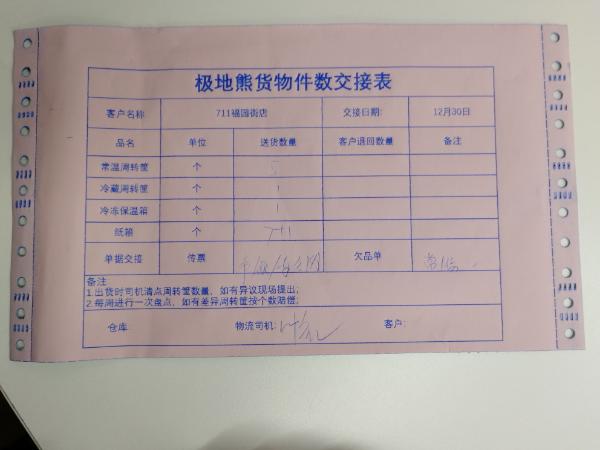 极地熊货物件数交接表
客户名称 711福园街店 交接日期: 12月30日
品名 单位 送货数量 客户退回数量 备注
常温周转筐 个 5
冷藏周转筐 个 1
冷冻保温箱 个 1
纸箱 个 7+1
单据交接 传票 欠品单 常温
备注
1.出货时司机清点周转筐数量，如有异议现场提出;
2.每周进行一次盘点，如有差异周转筐按个数赔偿;
仓库 物流司机: 客户: